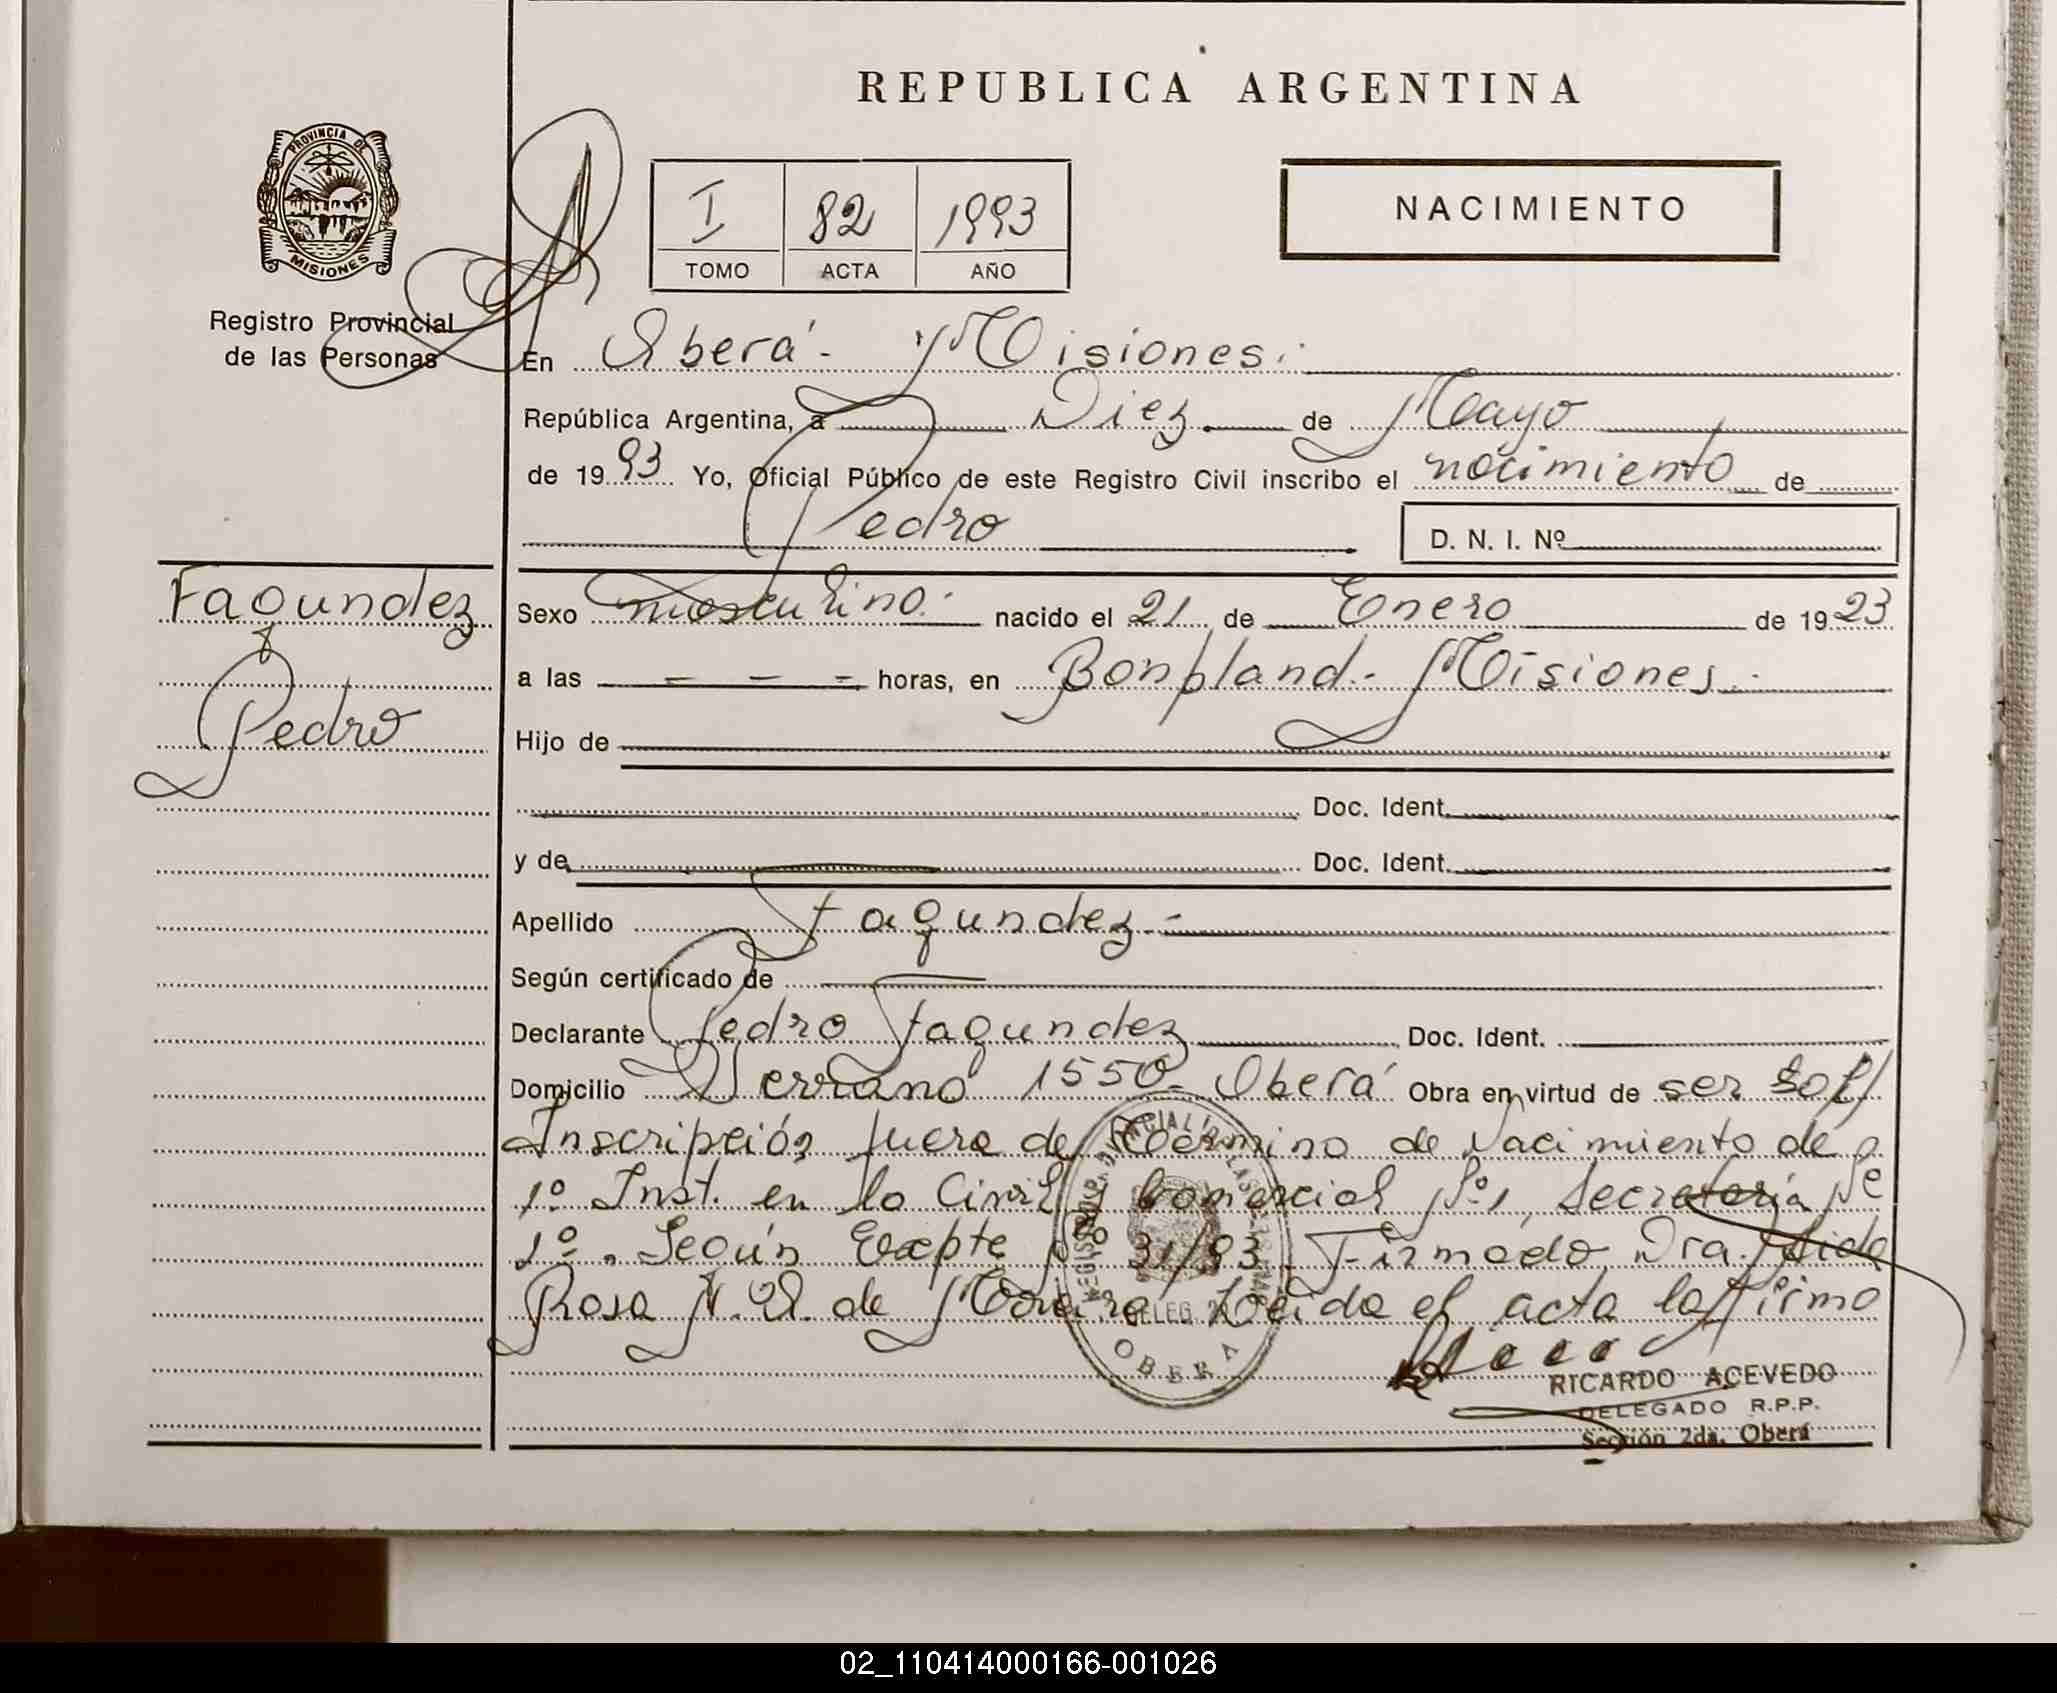 REPUBLICA ARGENTINA
PROVINCIA DE
MISIONES
Registro Provincial
de las Personas
I 82 1993
TOMO ACTA AÑO
NACIMIENTO
En Oberá - Misiones.
República Argentina, a Diez de Mayo
de 19 93 Yo, Oficial Público de este Registro Civil inscribo el nacimiento de
Pedro D. N. I. Nº
Fagundez
Pedro
Sexo masculino nacido el 21 de Enero de 19 23
a las - - - horas, en Bonpland - Misiones
Hijo de
Doc. Ident.
y de Doc. Ident.
Apellido Fagundez -
Según certificado de
Declarante Pedro Fagundez Doc. Ident.
Domicilio Serrano 1550 - Oberá Obra en virtud de ser
Inscripción fuera de Termino de Nacimiento de
1º Inst. en lo Civil y Comercial Nº 1, Secretaría
1º. Según Expte Nº 31/93 Firmado Dra.
Rosa de Leida el acta la firmo
OBERA
RICARDO ACEVEDO
DELEGADO R.P.P.
Sección 2da. Oberá
02_110414000166-001026